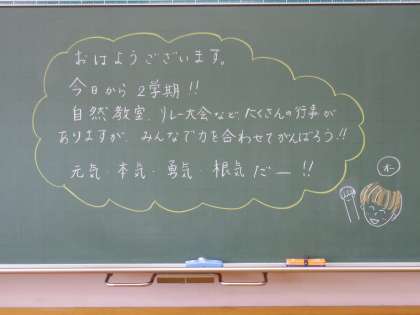 おはようございます。
今日から2学期!!
自然教室、リレー大会などたくさんの行事が
ありますが、みんなで力を合わせてがんばろう!!
元気・本気・勇気・根気だー!!
オー